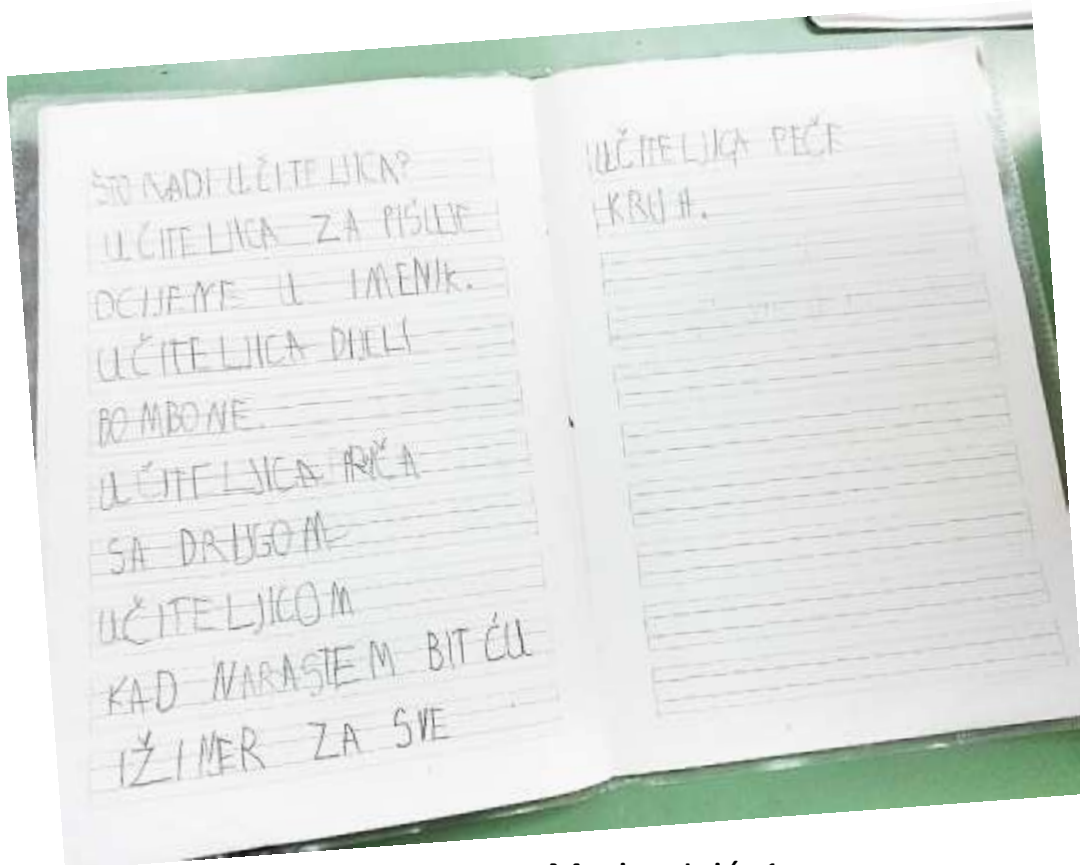 ŠTO RADI UČITELJICA?
UČITELJICA ZA PISUJE
OCIJENE U IMENIK.
UČITELJICA DIJELI
BOMBONE.
UČITELJICA PRIČA
SA DRUGOM
UČITELJICOM
KAD NARASTEM BIT ĆU
IŽINER ZA SVE
UČITELJICA PEČE
KRUH.